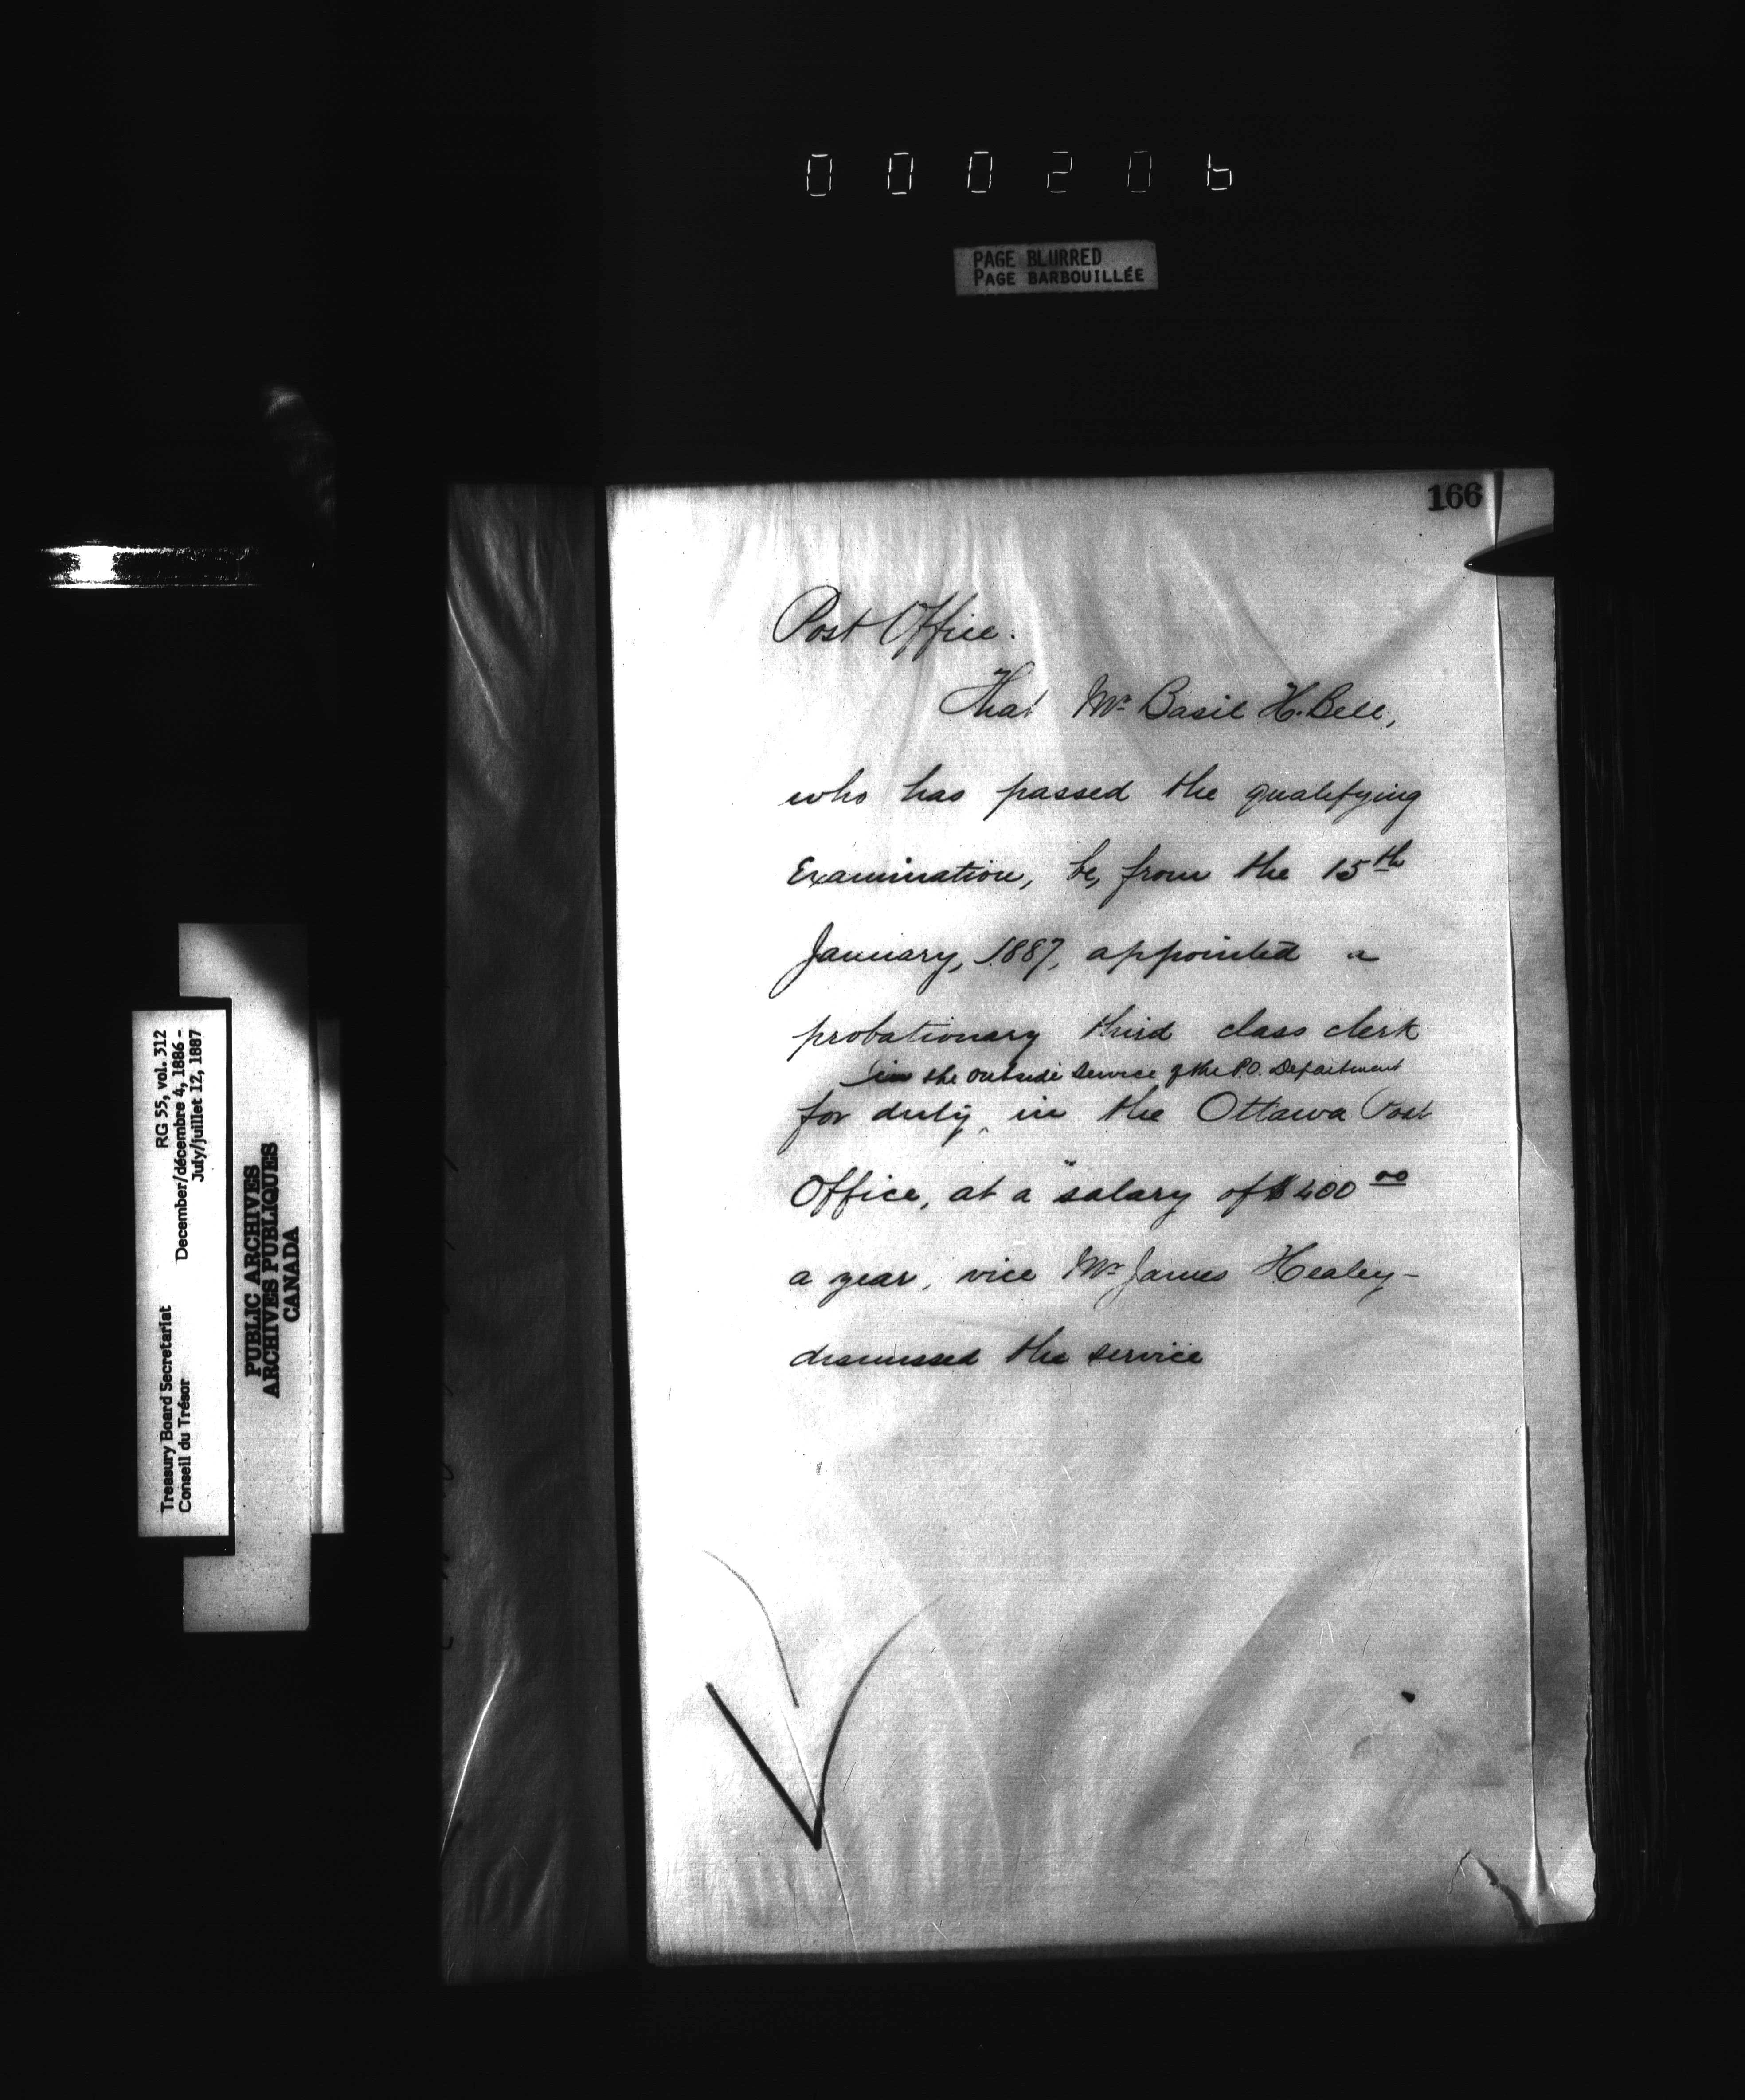 000206
PAGE BLURRED
PAGE BARBOUILLÉE
166
Post Office.
That Mr Basil H. Bell,
who has passed the qualifying
Examination, be, from the 15th
January, 1887, appointed a
probationary third class clerk
in the outside service of the P.O. Department
for duty ‸ in the Ottawa Post
Office, at a salary of $400 00
a year, vice Mr James Healey-
dismissed the service
Treasury Board Secretariat RG 55, vol. 312
Conseil du Trésor December/décembre 4, 1886 -
July/juillet 12, 1887
PUBLIC ARCHIVES
ARCHIVES PUBLIQUES
CANADA